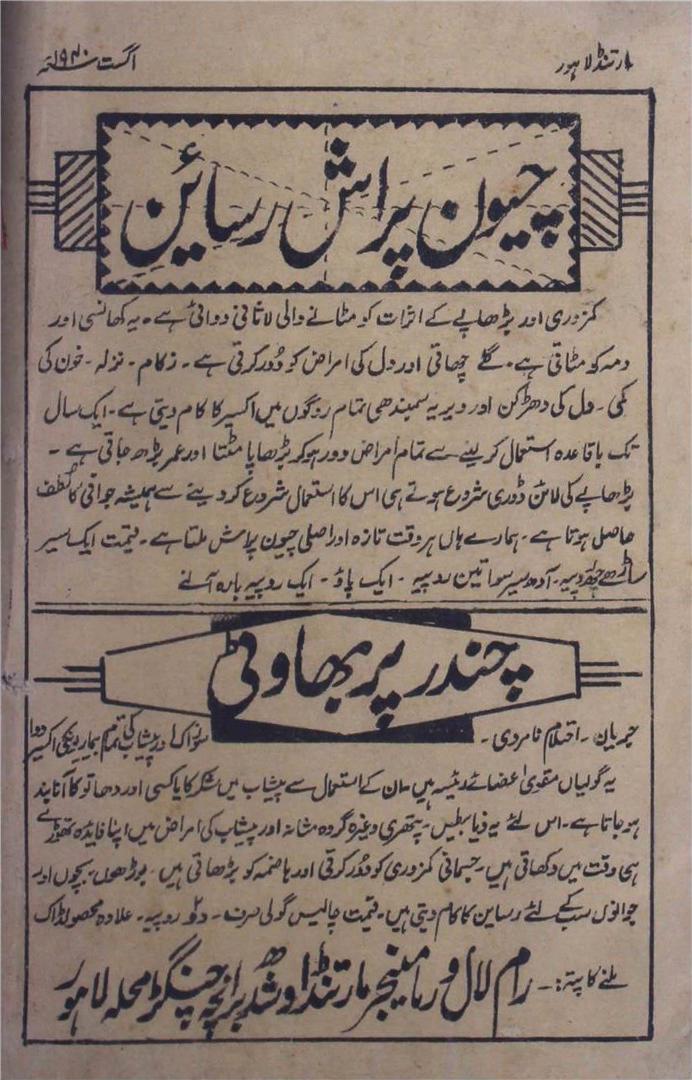 مارتنڈ لاہور
اگست ۱۹۴۰ء
چیون پراش رسائین
کمزوری اور بڑھاپے کے اثرات کو مٹانے والی لاثانی دوائی ہے۔ یہ کھانسی اور
دمہ کو مٹاتی ہے۔ گلے چھاتی اور دل کی امراض کو دُور کرتی ہے۔ زکام۔ نزلہ۔ خون کی
کمی۔ دل کی دھڑکن اور ویریہ سمبندھی تمام روگوں میں اکسیر کا کام دیتی ہے۔ ایک سال
تک باقاعدہ استعمال کرلینے سے تمام امراض دور ہوکر بڑھاپا مٹتا اور عمر بڑھ جاتی ہے۔
بڑھاپے کی لائن ڈوری شروع ہوتے ہی اس کا استعمال شروع کردینے سے ہمیشہ جوانی کا لُطف
حاصل ہوتا ہے۔ ہمارے ہاں ہر وقت تازہ اور اصلی چیون پراش ملتا ہے۔ قیمت ایک سیر
ساڑھے چھ روپیہ۔ آدھ سیر سوا تین روپیہ۔ ایک پاؤ۔ ایک روپیہ بارہ آنے
چندر پربھاوٹی
جریان۔ احتلام نامردی۔ سوزاک اور پیشاب کی تمام بیماریونکی اکسیر دوا
یہ گولیاں مقوی اعضائے رئیسہ ہیں۔ ان کے استعمال سے پیشاب میں شکر کا یا کسی اور دھاتو کا آنا بند
ہوجاتا ہے۔ اس لئے یہ ذیابطیس۔ پتھری وغیرہ گردہ مثانہ اور پیشاب کی امراض میں اپنا فایدہ تھوڑے
ہی وقت میں دکھاتی ہیں۔ جسمانی کمزوری کو دُور کرتی اور ہاضمہ کو بڑھاتی ہیں۔ بوڑھوں۔ بچوں اور
جوانوں سب کے لئے رساین کا کام دیتی ہیں۔ قیمت چالیس گولی صرف۔ دو روپیہ۔ علاوہ محصولڈاک
ملنے کا پتہ:۔ رام لال ورما مینیجر مارتنڈ اوشدھ برانچ چنگڑ محلہ لاہور